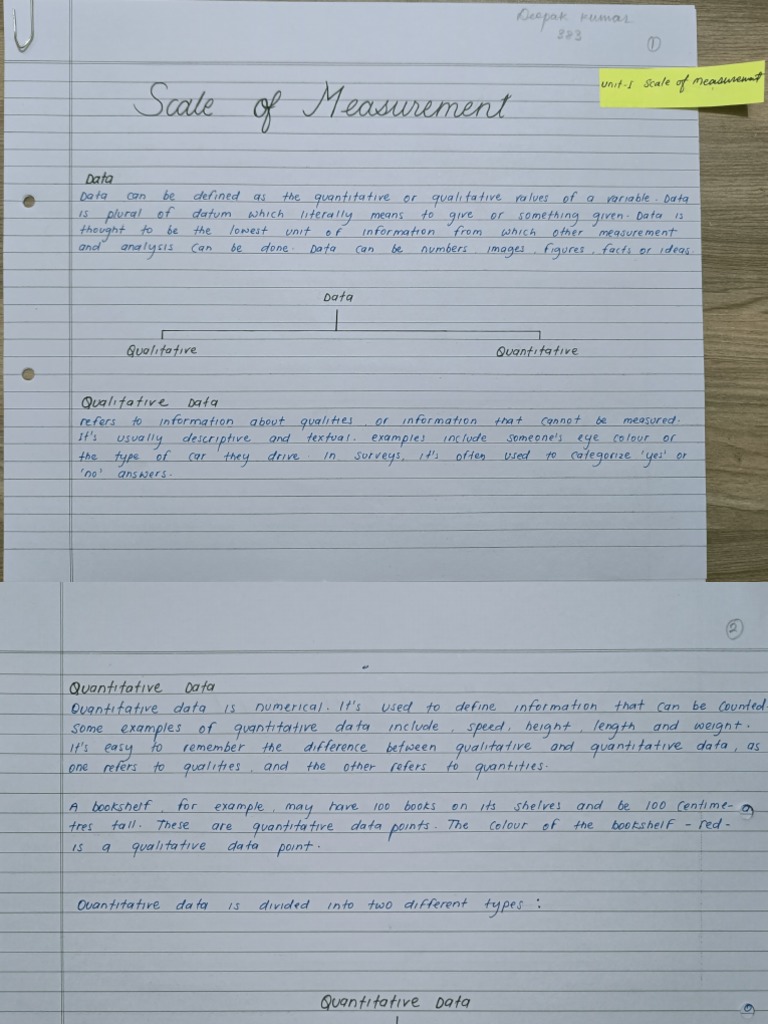 Deepak Kumar
383
1
Unit-1 Scale of Measurement
Scale of Measurement
Data
Data can be defined as the quantitative or qualitative values of a variable. Data
is plural of datum which literally means to give or something given. Data is
thought to be the lowest unit of information from which other measurement
and analysis can be done. Data can be numbers, images, figures, facts or ideas.
Data
Qualitative Quantitative
Qualitative Data
refers to information about qualities, or information that cannot be measured.
It's usually descriptive and textual. examples include someone's eye colour or
the type of car they drive. In surveys, it's often used to categorize 'yes' or
'no' answers.
2
Quantitative Data
Quantitative data is numerical. It's used to define information that can be counted.
Some examples of quantitative data include, speed, height, length and weight.
It's easy to remember the difference between qualitative and quantitative data, as
one refers to qualities, and the other refers to quantities.
A bookshelf, for example, may have 100 books on its shelves and be 100 centime-
tres tall. These are quantitative data points. The colour of the bookshelf - red -
is a qualitative data point.
Quantitative data is divided into two different types :
Quantitative Data